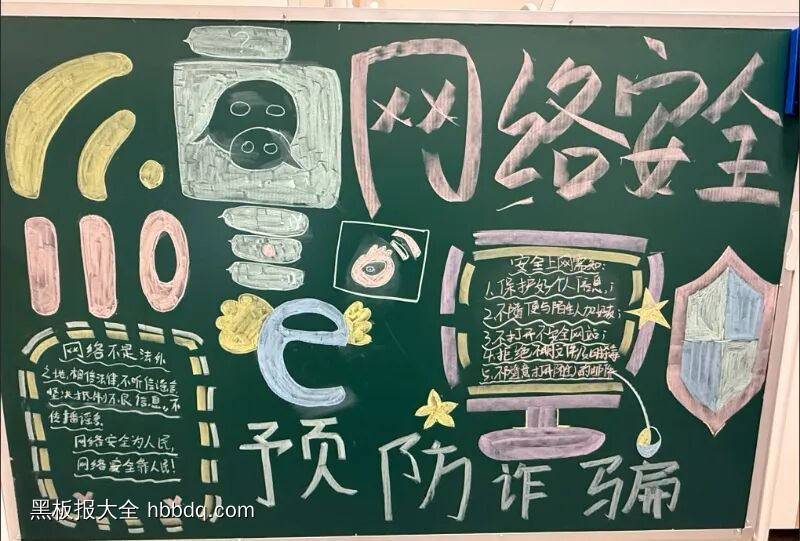 ?
网络安全
110
e
安全上网需知:
1.保护好个人信息;
2.不随便与陌生人加好友;
3.不打开不安全网站;
4.拒绝
5.不随意打开陌生
网络不是法外
之地.相信法律不听信谣言
坚决抵制不良信息.不
传播谣言
网络安全为人民,
网络安全靠人民!
预防诈骗
黑板报大全 hbbdq.com